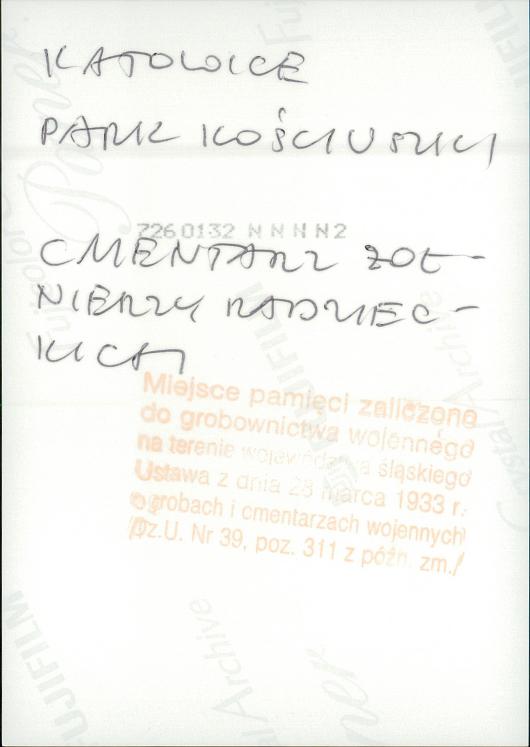 KATOWICE
PARK KOŚCIUSZKI
7260132 N N N N2
CMENTARZ ŻOŁ-
NIERZY RADZIEC-
KICH
Miejsce pamięci zaliczone
do grobownictwa wojennego
na terenie województwa śląskiego
Ustawa z dnia 28 marca 1933 r.
o grobach i cmentarzach wojennych
/Dz.U. Nr 39, poz. 311 z późn. zm./
Fujicolor
Crystal Archive
Paper
FUJIFILM
FUJIFILM
FUJIFILM
Archive